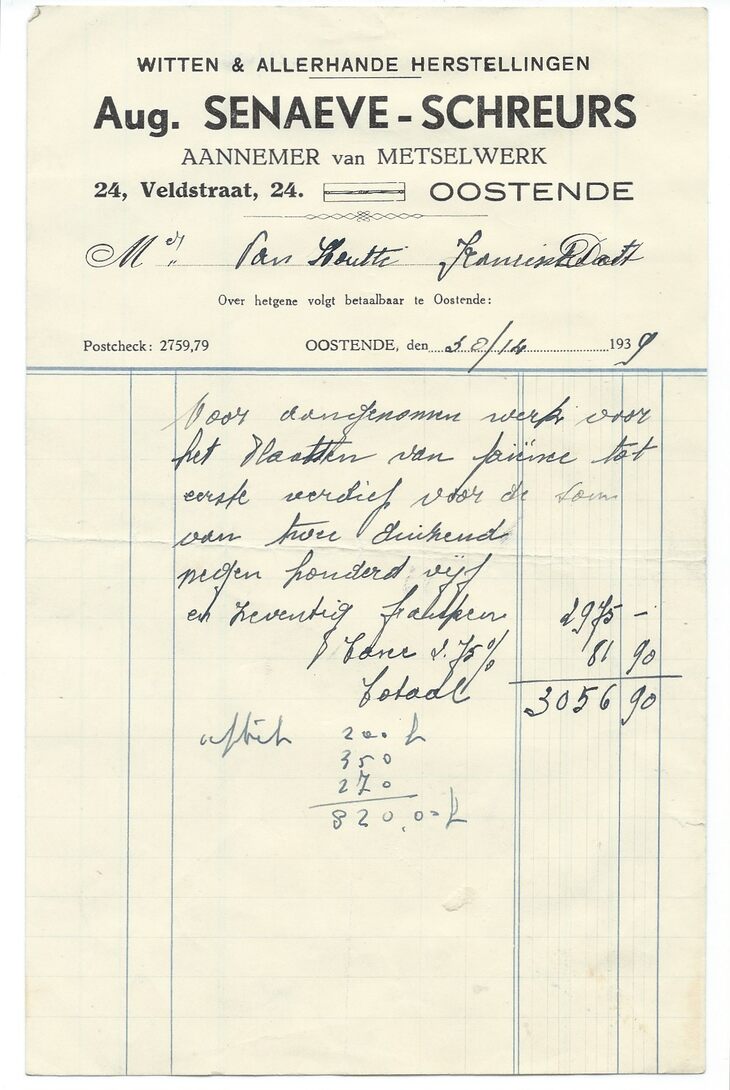 WITTEN & ALLERHANDE HERSTELLINGEN
Aug. SENAEVE - SCHREURS
AANNEMER van METSELWERK
24, Veldstraat, 24. OOSTENDE
Md Van
Over hetgene volgt betaalbaar te Oostende:
Postcheck: 2759,79 OOSTENDE, den 30/12 1939
Voor aangenomen werk voor
het Plaatsen van faience tot
eerste verdief voor de som
van twee duizend
negen honderd vijf
en zeventig franken 2975 -
Taxe 2.75% 81 90
Totaal 3056 90
200 f
350
270
820,00 f